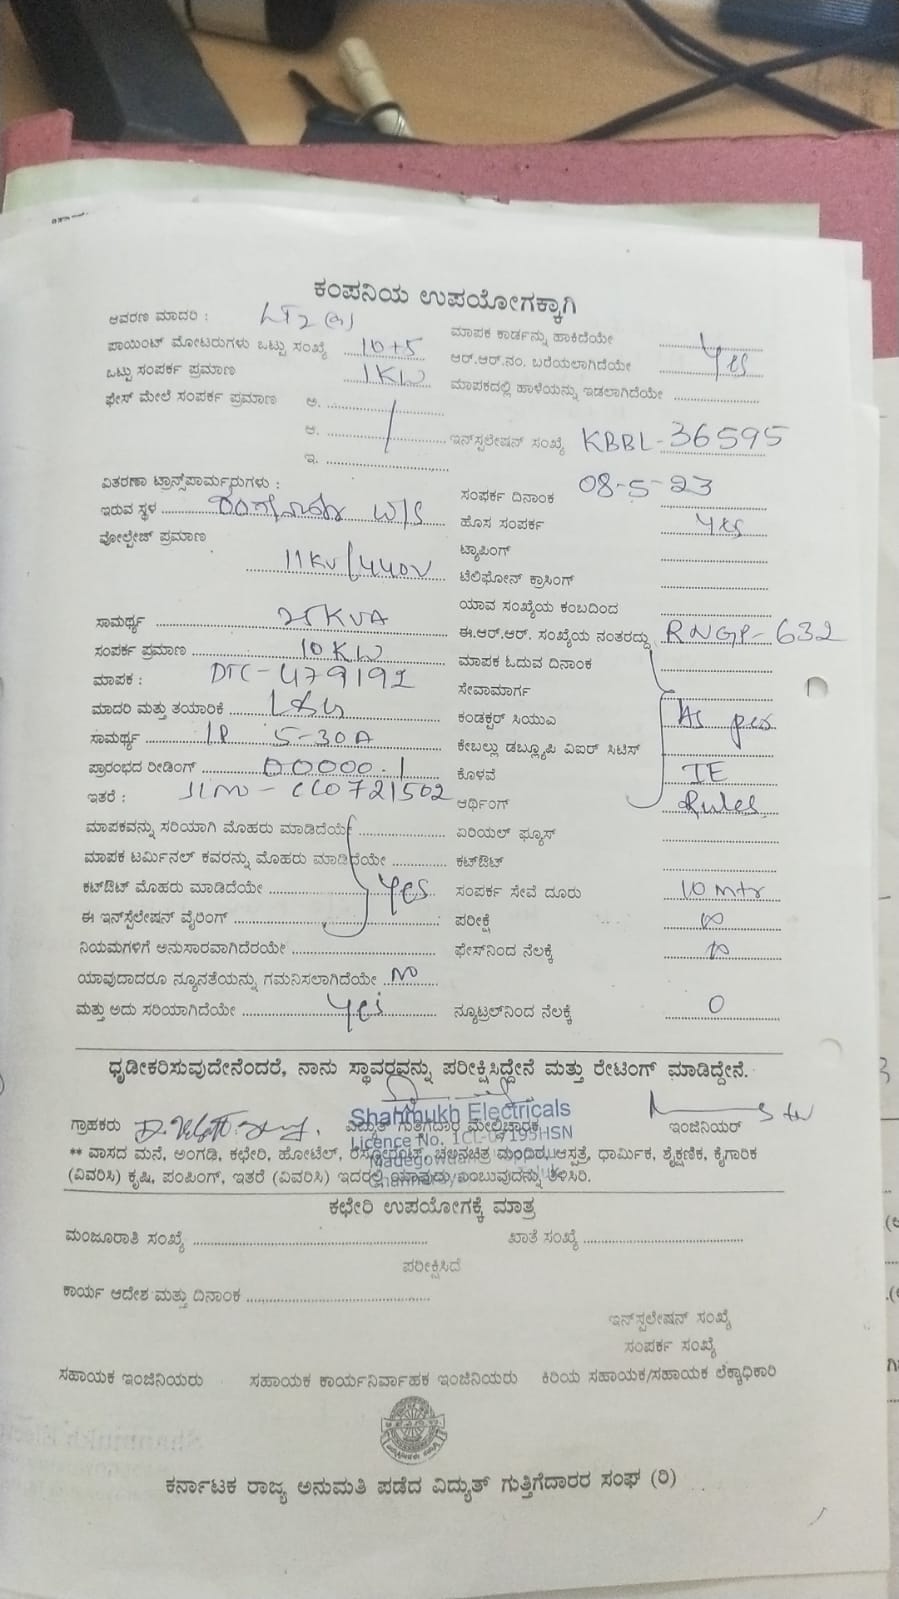 ಕಂಪನಿಯ ಉಪಯೋಗಕ್ಕಾಗಿ
ಆವರಣ ಮಾದರಿ : LT2 (a)
ಮಾಪಕ ಕಾರ್ಡನ್ನು ಹಾಕಿದೆಯೇ
ಪಾಯಿಂಟ್ ಮೋಟರುಗಳು ಒಟ್ಟು ಸಂಖ್ಯೆ 10+5
ಆರ್.ಆರ್.ನಂ. ಬರೆಯಲಾಗಿದೆಯೇ Yes
ಒಟ್ಟು ಸಂಪರ್ಕ ಪ್ರಮಾಣ 1KW
ಮಾಪಕದಲ್ಲಿ ಹಾಳೆಯನ್ನು ಇಡಲಾಗಿದೆಯೇ
ಫೇಸ್ ಮೇಲೆ ಸಂಪರ್ಕ ಪ್ರಮಾಣ ಅ.
ಆ.
ಇನ್‌ಸ್ಟಲೇಷನ್ ಸಂಖ್ಯೆ KBBL-36595
ಇ.
ವಿತರಣಾ ಟ್ರಾನ್ಸ್‌ಫಾರ್ಮ್ಮರುಗಳು :
ಸಂಪರ್ಕ ದಿನಾಂಕ 08-5-23
ಇರುವ ಸ್ಥಳ W/S
ಹೊಸ ಸಂಪರ್ಕ Yes
ವೋಲ್ಟೇಜ್ ಪ್ರಮಾಣ 11KV/440V
ಟ್ಯಾಪಿಂಗ್
ಟೆಲಿಫೋನ್ ಕ್ರಾಸಿಂಗ್
ಯಾವ ಸಂಖ್ಯೆಯ ಕಂಬದಿಂದ
ಸಾಮರ್ಥ್ಯ 25KVA
ಈ.ಆರ್.ಆರ್. ಸಂಖ್ಯೆಯ ನಂತರದ್ದು RNGP-632
ಸಂಪರ್ಕ ಪ್ರಮಾಣ 10KW
ಮಾಪಕ ಓದುವ ದಿನಾಂಕ
ಮಾಪಕ : DTC-479192
ಸೇವಾಮಾರ್ಗ
ಮಾದರಿ ಮತ್ತು ತಯಾರಿಕೆ L&G
ಕಂಡಕ್ಟರ್ ಸಿಯುಎ As per
ಸಾಮರ್ಥ್ಯ 1P 5-30A
ಕೇಬಲ್ಲು ಡಬ್ಲ್ಯೂಪಿ ವಿಐರ್ ಸಿಟಿಸ್
ಪ್ರಾರಂಭದ ರೀಡಿಂಗ್ 00000.1
ಕೊಳವೆ IE
ಇತರೆ : CC0721502
ಆರ್ಥಿಂಗ್ Rules
ಮಾಪಕವನ್ನು ಸರಿಯಾಗಿ ಮೊಹರು ಮಾಡಿದೆಯೇ
ಏರಿಯಲ್ ಫ್ಯೂಸ್
ಮಾಪಕ ಟರ್ಮಿನಲ್ ಕವರನ್ನು ಮೊಹರು ಮಾಡಿದೆಯೇ
ಕಟ್‌ಔಟ್
ಕಟ್‌ಔಟ್ ಮೊಹರು ಮಾಡಿದೆಯೇ Yes
ಸಂಪರ್ಕ ಸೇವೆ ದೂರು 10 Mtr
ಈ ಇನ್‌ಸ್ಟೆಲೇಷನ್ ವೈರಿಂಗ್
ಪರೀಕ್ಷೆ ∞
ನಿಯಮಗಳಿಗೆ ಅನುಸಾರವಾಗಿದೆರಯೇ
ಫೇಸ್‌ನಿಂದ ನೆಲಕ್ಕೆ ∞
ಯಾವುದಾದರೂ ನ್ಯೂನತೆಯನ್ನು ಗಮನಿಸಲಾಗಿದೆಯೇ No
ಮತ್ತು ಅದು ಸರಿಯಾಗಿದೆಯೇ Yes
ನ್ಯೂಟ್ರಲ್‌ನಿಂದ ನೆಲಕ್ಕೆ 0
ಧೃಡೀಕರಿಸುವುದೇನೆಂದರೆ, ನಾನು ಸ್ಥಾವರವನ್ನು ಪರೀಕ್ಷಿಸಿದ್ದೇನೆ ಮತ್ತು ರೇಟಿಂಗ್ ಮಾಡಿದ್ದೇನೆ.
Shanmukh Electricals
ಗ್ರಾಹಕರು
ವಿದ್ಯುತ್ ಗುತ್ತಿಗೆದಾರ ಮೇಲ್ವಿಚಾರಕ
ಇಂಜಿನಿಯರ್
Licence No.
** ವಾಸದ ಮನೆ, ಅಂಗಡಿ, ಕಛೇರಿ, ಹೋಟೆಲ್, ರೆಸ್ಟೋರೆಂಟ್, ಚಲನಚಿತ್ರ ಮಂದಿರ, ಆಸ್ಪತ್ರೆ, ಧಾರ್ಮಿಕ, ಶೈಕ್ಷಣಿಕ, ಕೈಗಾರಿಕ
(ವಿವರಿಸಿ) ಕೃಷಿ, ಪಂಪಿಂಗ್, ಇತರೆ (ವಿವರಿಸಿ) ಇದರಲ್ಲಿ ಯಾವುದು ಎಂಬುವುದನ್ನು ತಿಳಿಸಿರಿ.
ಕಛೇರಿ ಉಪಯೋಗಕ್ಕೆ ಮಾತ್ರ
ಮಂಜೂರಾತಿ ಸಂಖ್ಯೆ
ಖಾತೆ ಸಂಖ್ಯೆ
ಪರೀಕ್ಷಿಸಿದೆ
ಕಾರ್ಯ ಆದೇಶ ಮತ್ತು ದಿನಾಂಕ
ಇನ್‌ಸ್ಟಲೇಷನ್ ಸಂಖ್ಯೆ
ಸಂಪರ್ಕ ಸಂಖ್ಯೆ
ಸಹಾಯಕ ಇಂಜಿನಿಯರು ಸಹಾಯಕ ಕಾರ್ಯನಿರ್ವಾಹಕ ಇಂಜಿನಿಯರು ಕಿರಿಯ ಸಹಾಯಕ/ಸಹಾಯಕ ಲೆಕ್ಕಾಧಿಕಾರಿ
ಕರ್ನಾಟಕ ರಾಜ್ಯ ಅನುಮತಿ ಪಡೆದ ವಿದ್ಯುತ್ ಗುತ್ತಿಗೆದಾರರ ಸಂಘ (ರಿ)